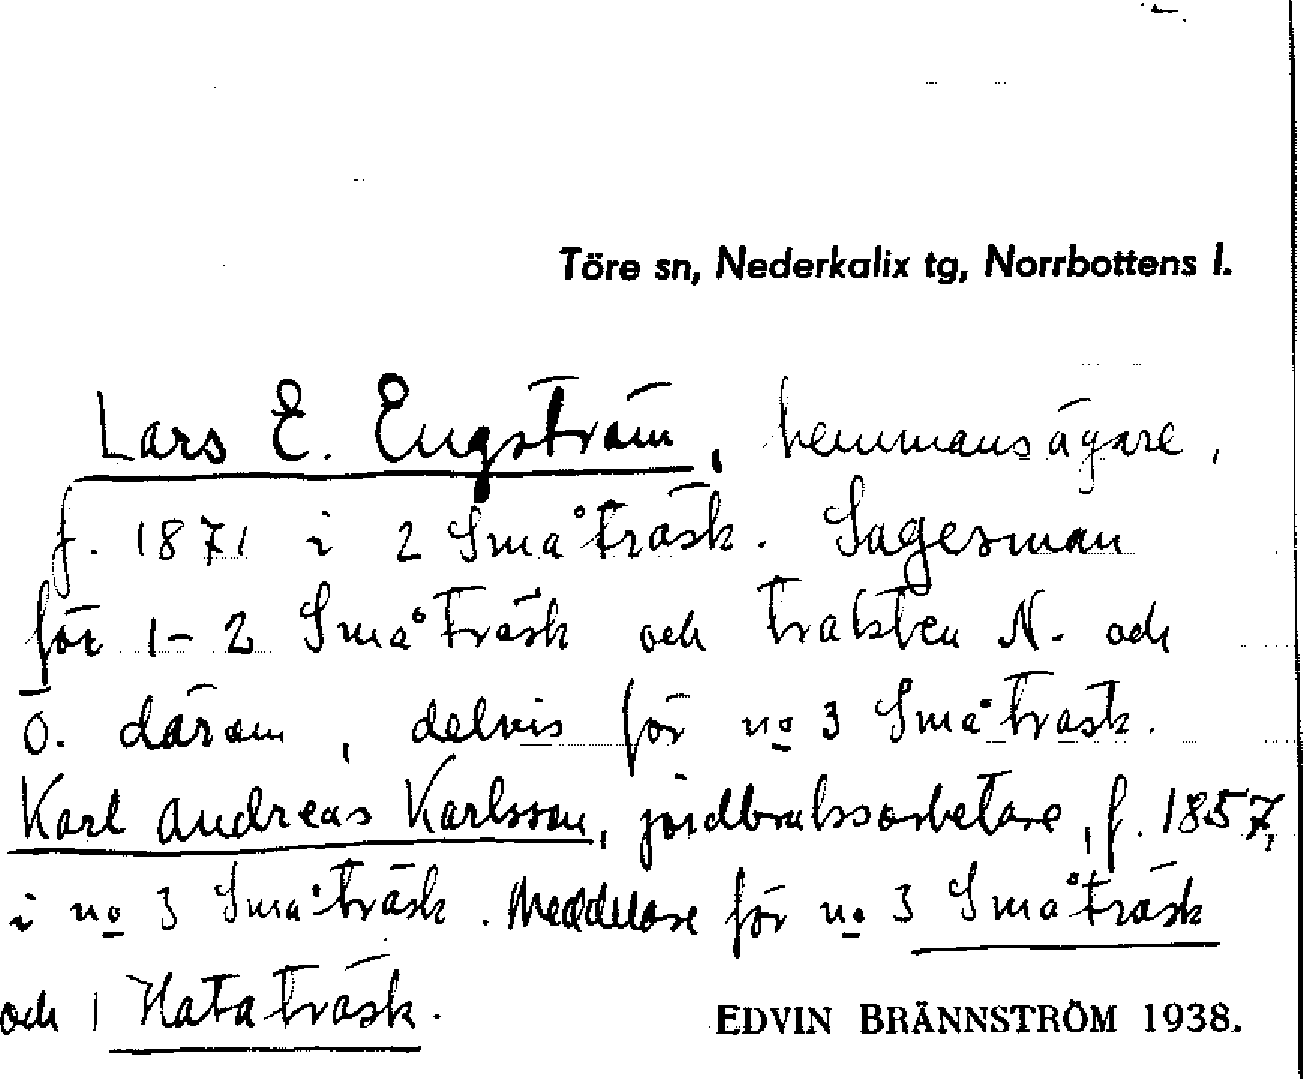 Töre sn, Nederkalix tg, Norrbottens l.
Lars E. Engström, hemmansägare,
f. 1871 i 2 Småträsk. Sagesman
för 1-2 Småträsk och trakten N. och
Ö. därom, delvis för no 3 Småträsk.
Karl Andreas Karlsson, jordbruksarbetare, f. 1857,
i no 3 Småträsk. Meddelare för no 3 Småträsk
och 1 Hataträsk.
EDVIN BRÄNNSTRÖM 1938.